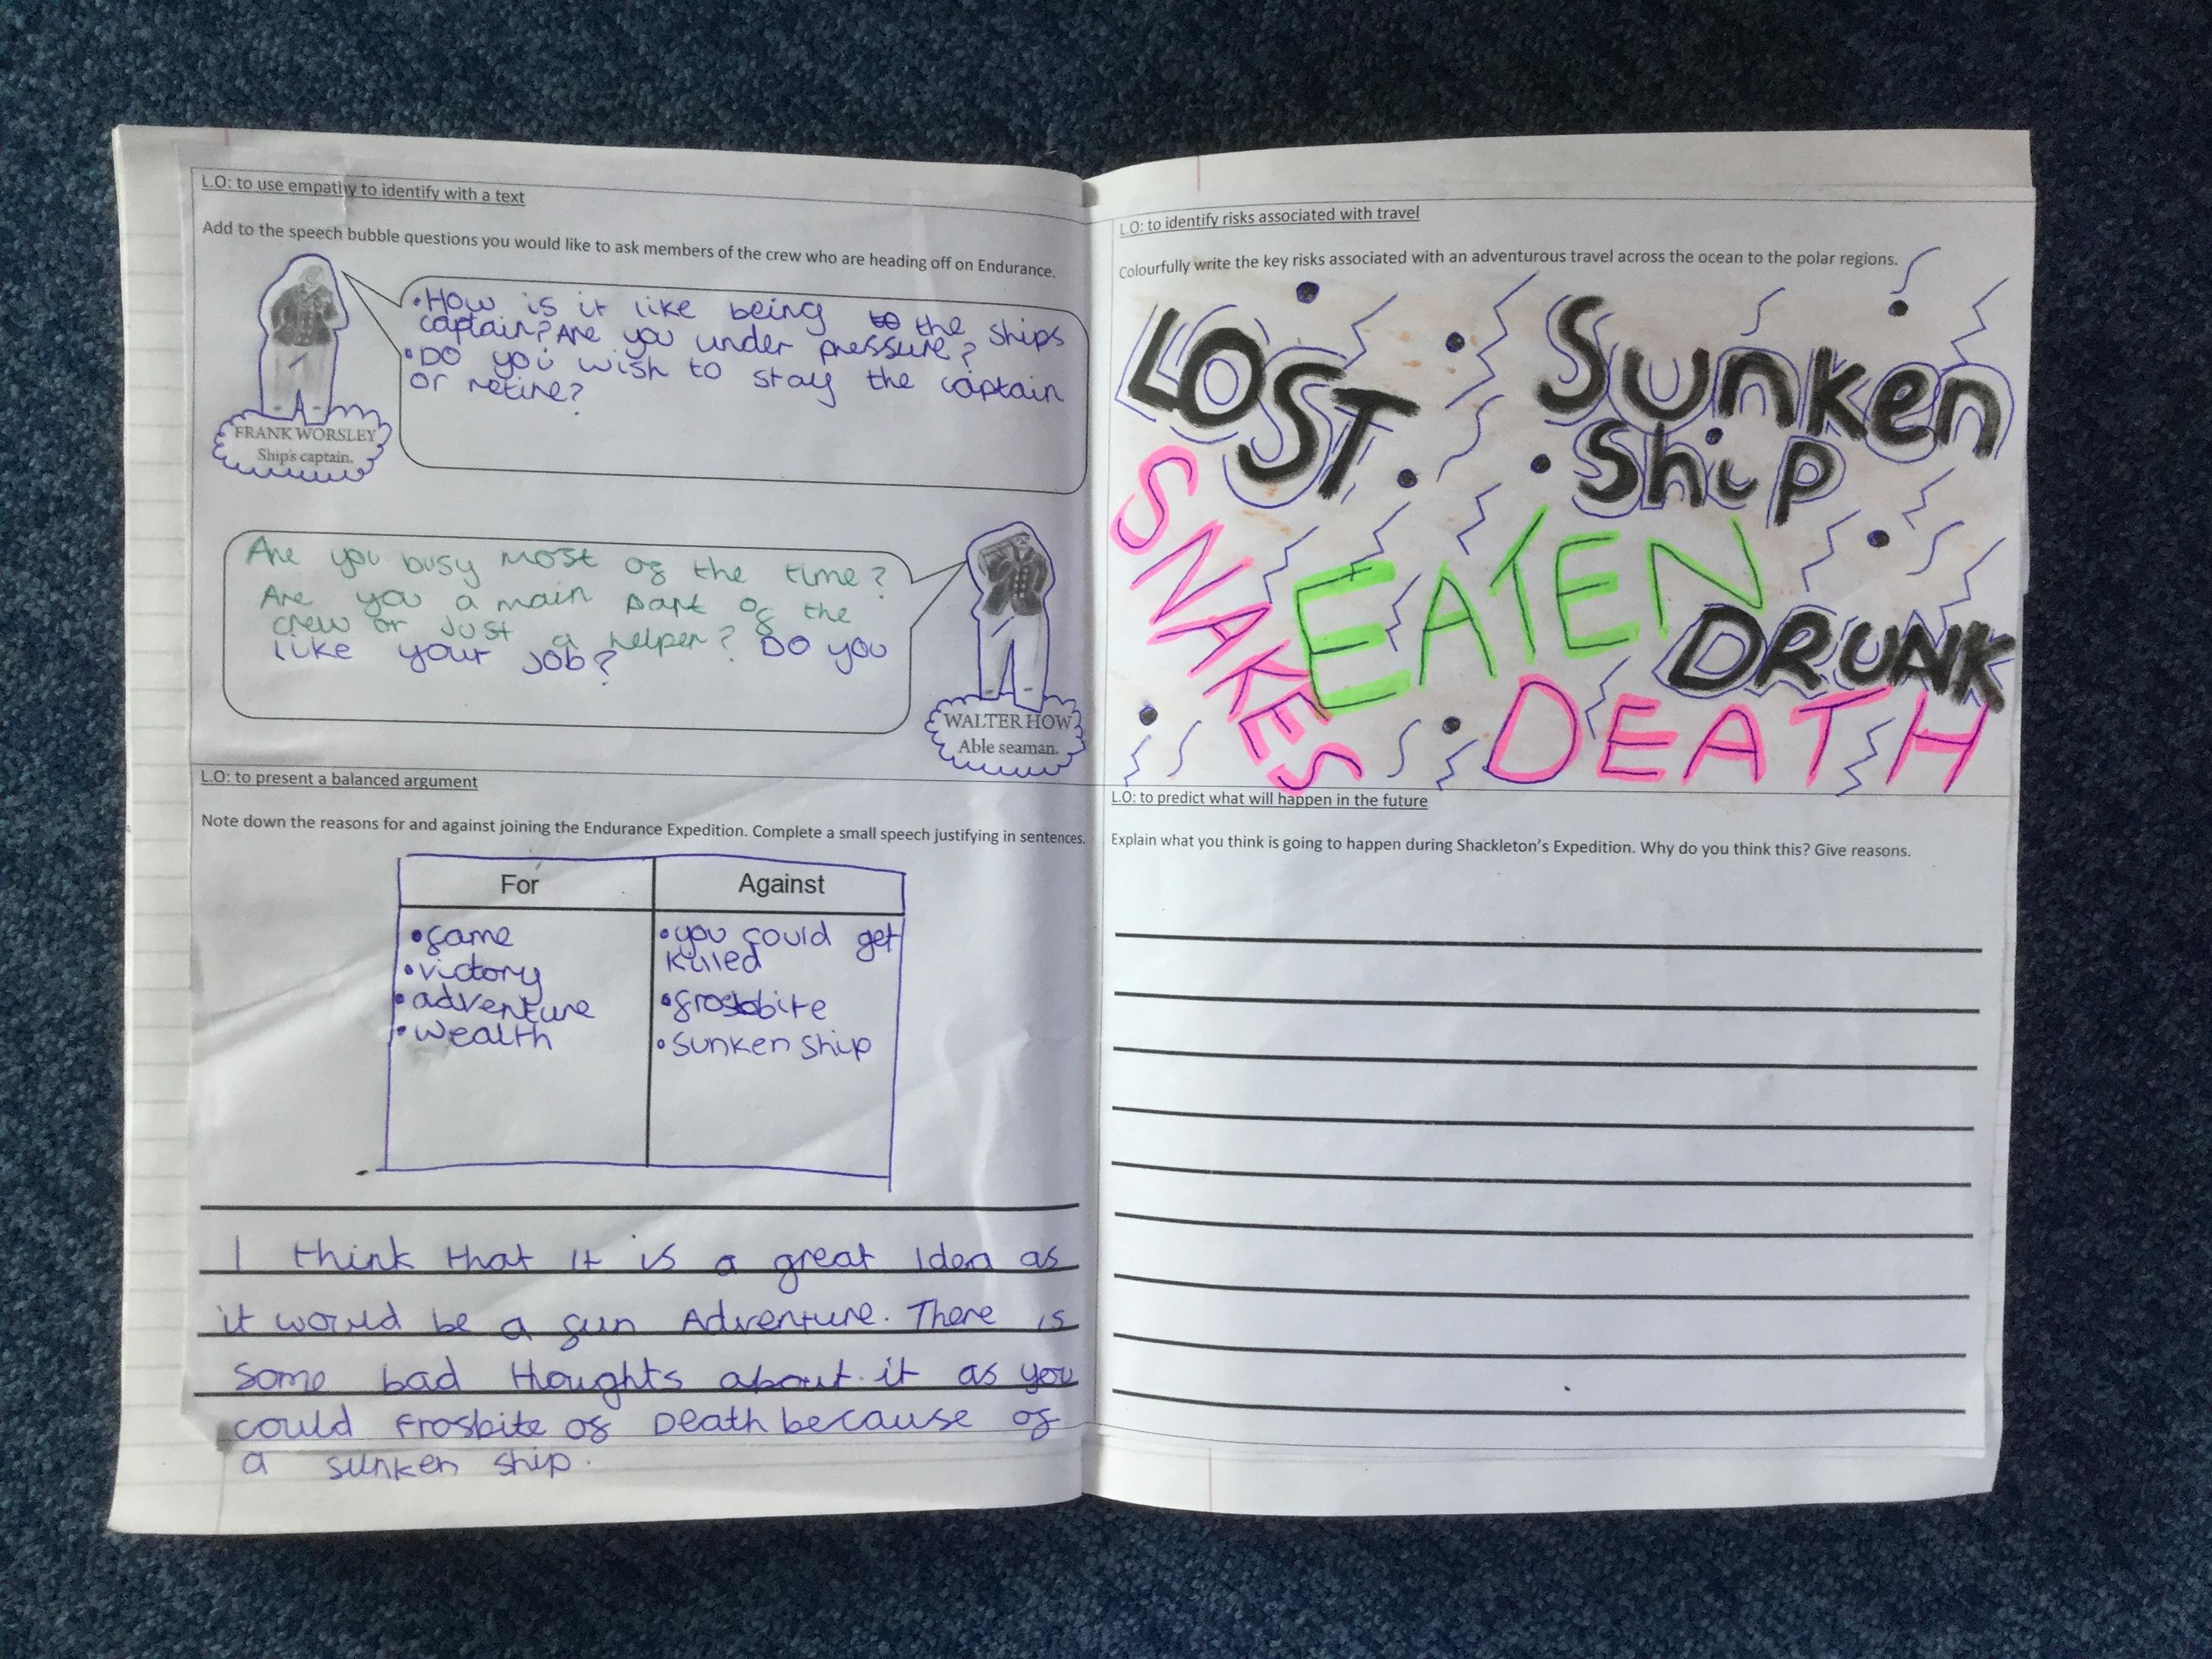 L.O: to use empathy to identify with a text
Add to the speech bubble questions you would like to ask members of the crew who are heading off on Endurance.
• How is it like being to the ships
captain? Are you under pressure?
• Do you wish to stay the captain
or retire?
FRANK WORSLEY
Ship's captain.
Are you busy most of the time?
Are you a main part of the
crew or just a helper? Do you
like your job?
WALTER HOW
Able seaman.
L.O: to present a balanced argument
Note down the reasons for and against joining the Endurance Expedition. Complete a small speech justifying in sentences.
For
• fame
• victory
• adventure
• wealth
Against
• you could get
killed
• frostbite
• sunken ship
I think that it is a great Idea as
it would be a fun Adventure. There is
some bad thoughts about it as you
could Frosbite of Death because of
a sunken ship.
L.O: to identify risks associated with travel
Colourfully write the key risks associated with an adventurous travel across the ocean to the polar regions.
LOST
Sunken
Ship
SNAKES
EATEN
DRUNK
DEATH
L.O: to predict what will happen in the future
Explain what you think is going to happen during Shackleton's Expedition. Why do you think this? Give reasons.